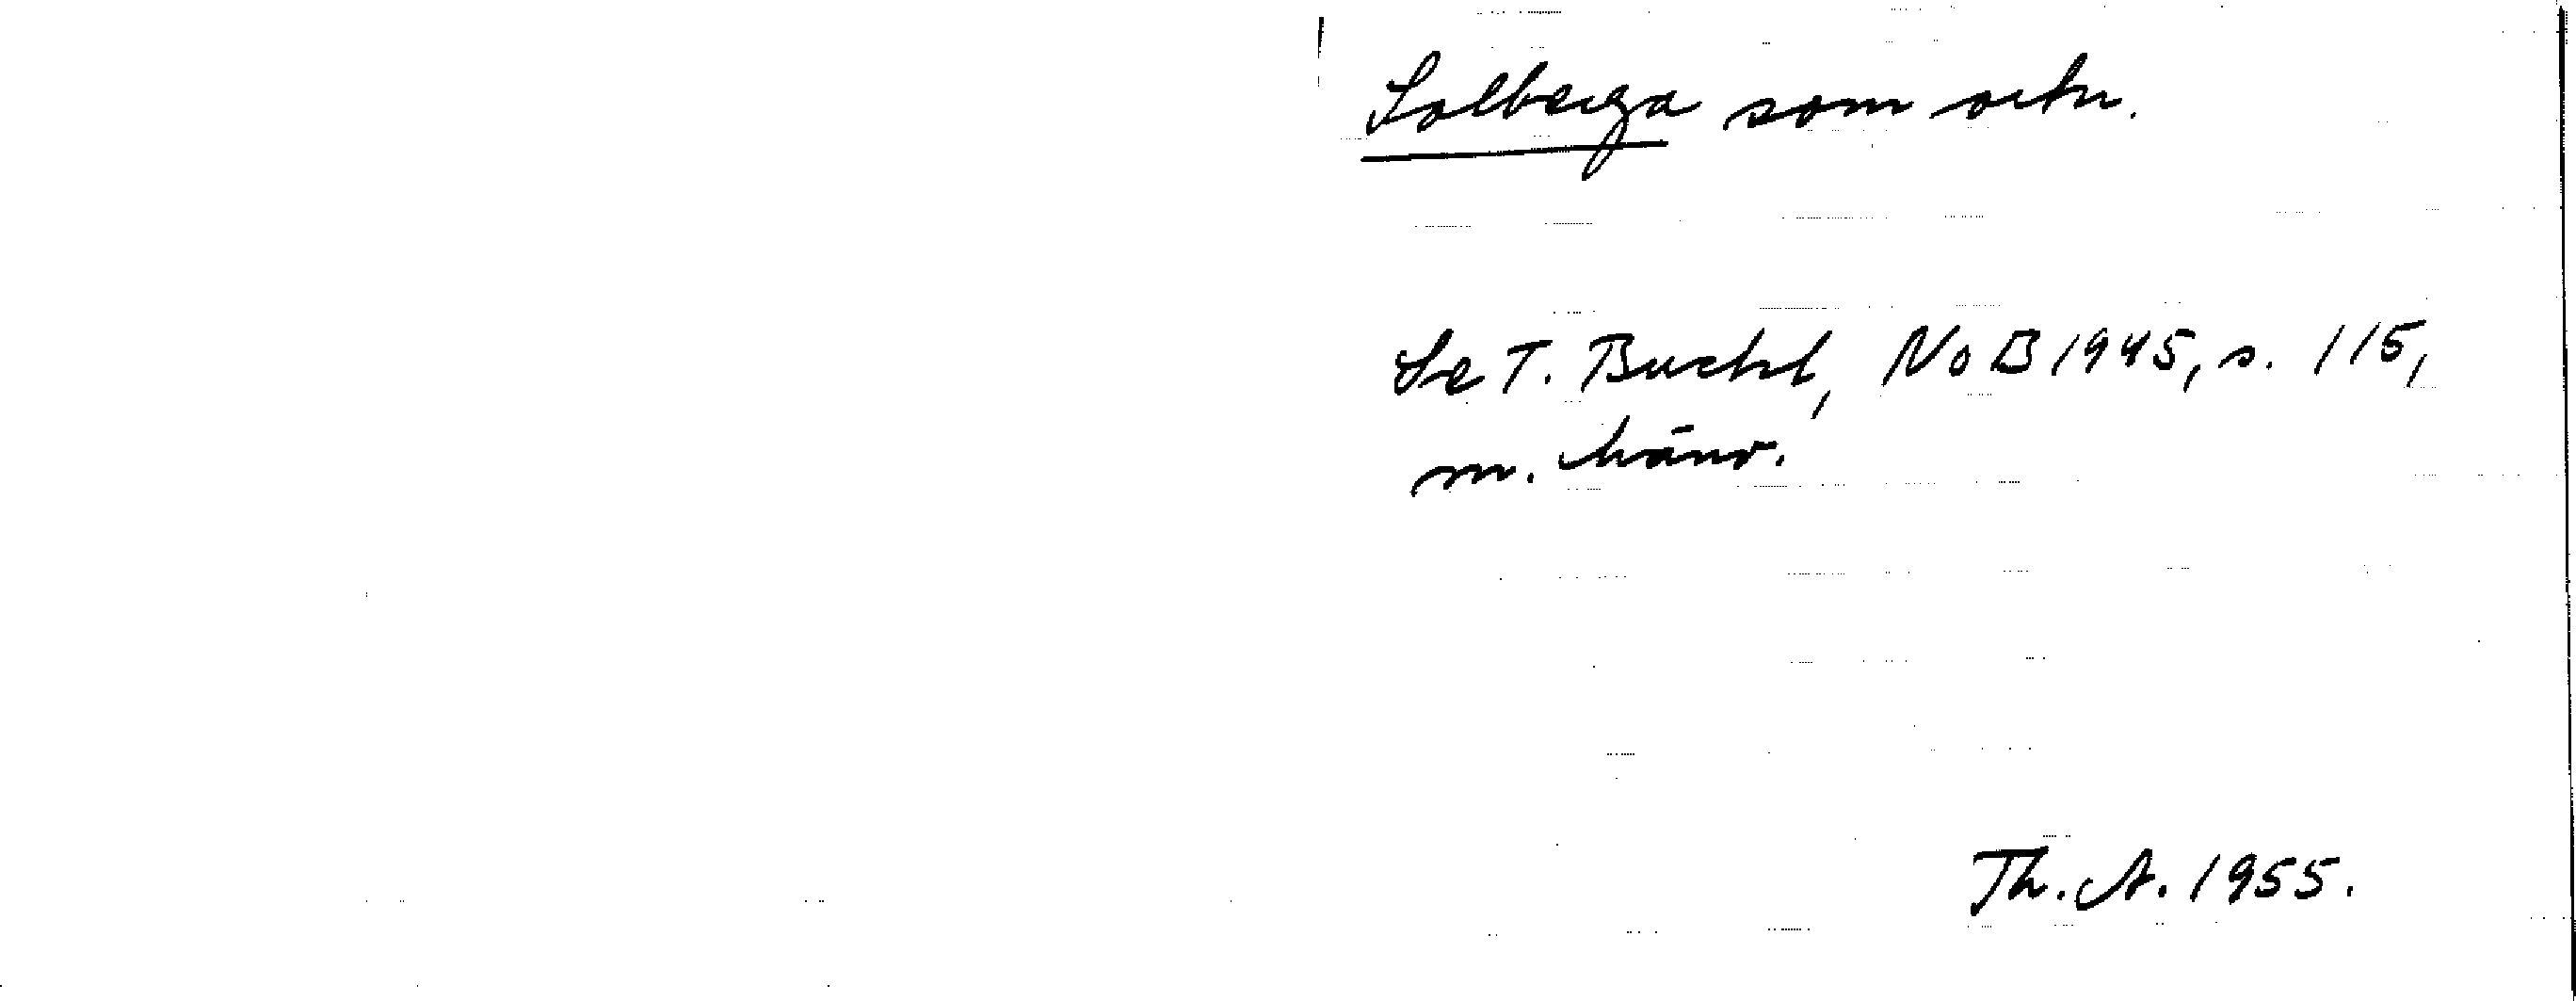 Solberga som ortn.
Se T. Bucht, NoB 1945, s. 115,
m. hänv.
Th. A. 1955.